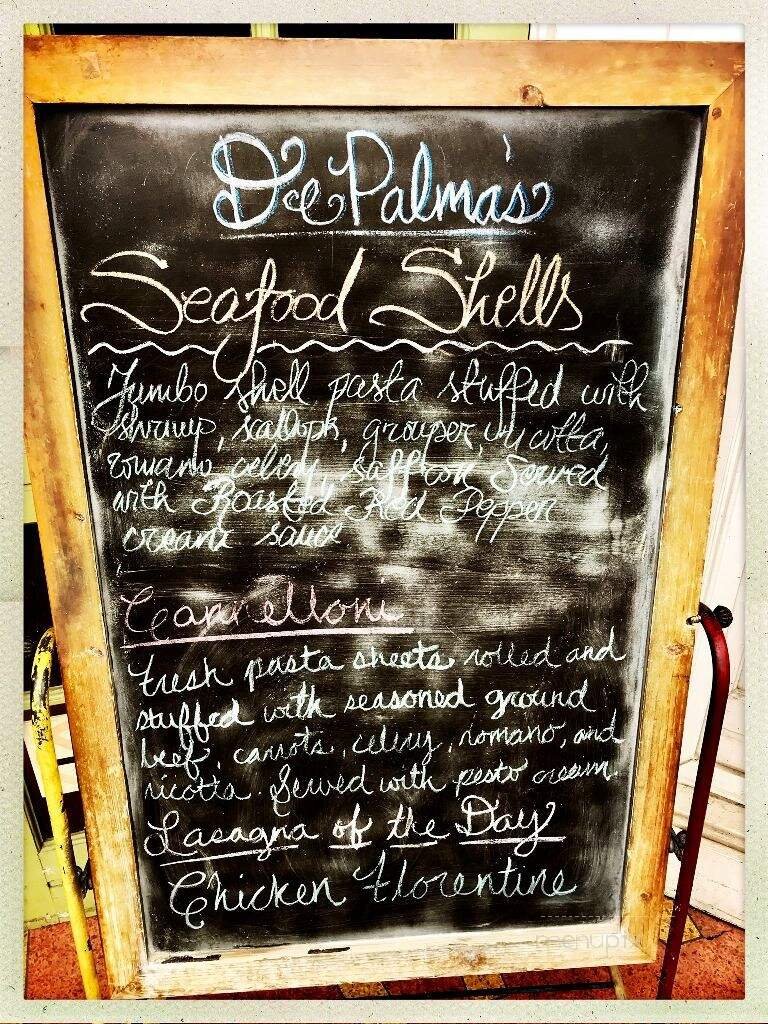 DePalma's
Seafood Shells
Jumbo shell pasta stuffed with
shrimp, scallops, grouper, ricotta,
romano, celery, saffron Served
with Roasted Red Pepper
cream sauce
Cannelloni
Fresh pasta sheets rolled and
stuffed with seasoned ground
beef, carrots, celery, romano, and
ricotta. Served with pesto cream.
Lasagna of the Day
Chicken Florentine